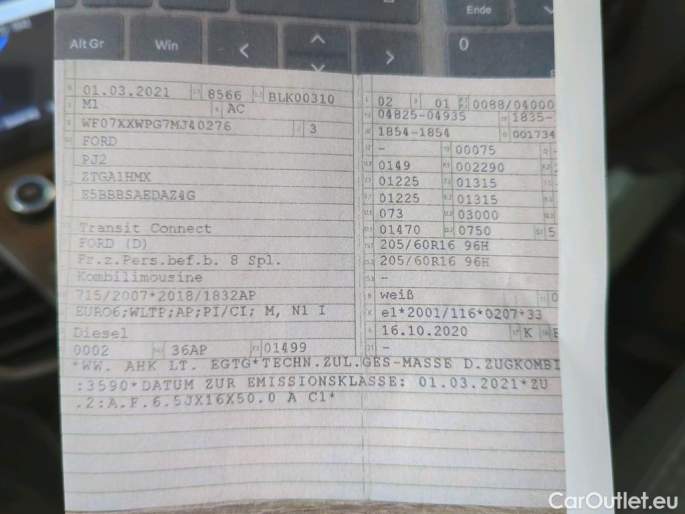 Ende
Alt Gr
Win
0
01.03.2021 8566 BLK00310
M1 AC
WF07XXWPG7MJ40276 3
FORD
PJ2
ZTGA1HMX
E5BBBSAEDAZ4G
Transit Connect
FORD (D)
Fr.z.Pers.bef.b. 8 Spl.
Kombilimousine
715/2007*2018/1832AP
EURO6;WLTP;AP;PI/CI; M, N1 I
Diesel
0002 36AP 01499
02 01 0088/04000
04825-04935 1835-
1854-1854 001734
- 00075
0149 002290
01225 01315
01225 01315
073 03000
01470 0750 5
205/60R16 96H
205/60R16 96H
-
weiß
e1*2001/116*0207*33
16.10.2020 K
-
*WW. AHK LT. EGTG*TECHN.ZUL.GES-MASSE D.ZUGKOMBI
:3590*DATUM ZUR EMISSIONSKLASSE: 01.03.2021*ZU
.2:A.F.6.5JX16X50.0 A C1*
CarOutlet.eu